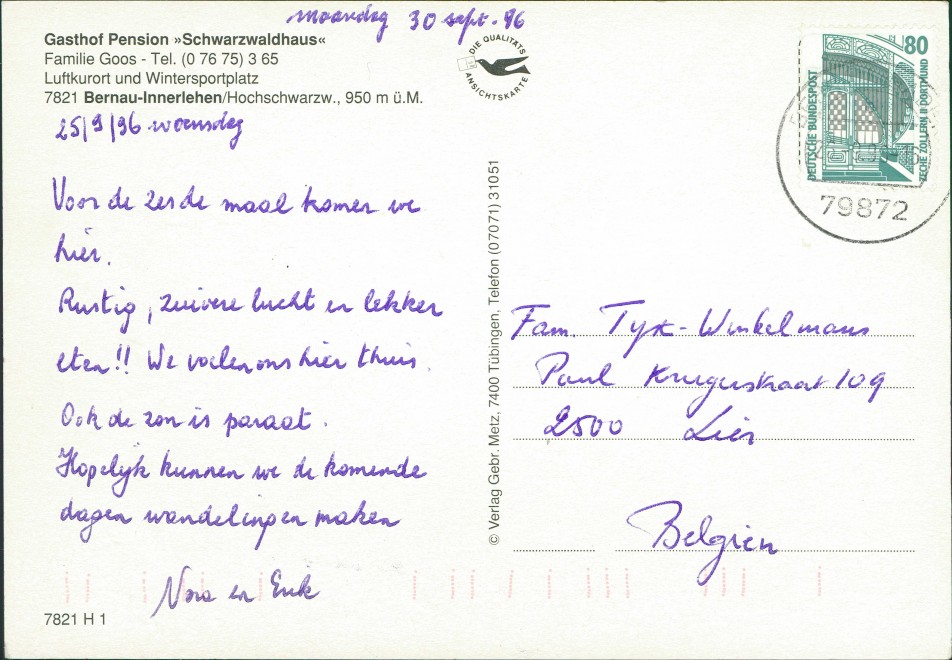 maandag 30 sept. 96
Gasthof Pension »Schwarzwaldhaus«
Familie Goos - Tel. (0 76 75) 3 65
Luftkurort und Wintersportplatz
7821 Bernau-Innerlehen/Hochschwarzw., 950 m ü.M.
25/9/96 woensdag
Voor de zesde maal komen we
hier.
Rustig, zuivere lucht en lekker
eten!! We voelen ons hier thuis.
Ook de zon is paraat.
Hopelijk kunnen we de komende
dagen wandelingen maken
Nora en Erik
7821 H 1
DIE QUALITÄTS
ANSICHTSKARTE
© Verlag Gebr. Metz, 7400 Tübingen, Telefon (07071) 31051
80
DEUTSCHE BUNDESPOST
ZECHE ZOLLERN II DORTMUND
79872
Fam. Tyck-Winkelmans
Paul Krugerstraat 109
2500 Lier
Belgien